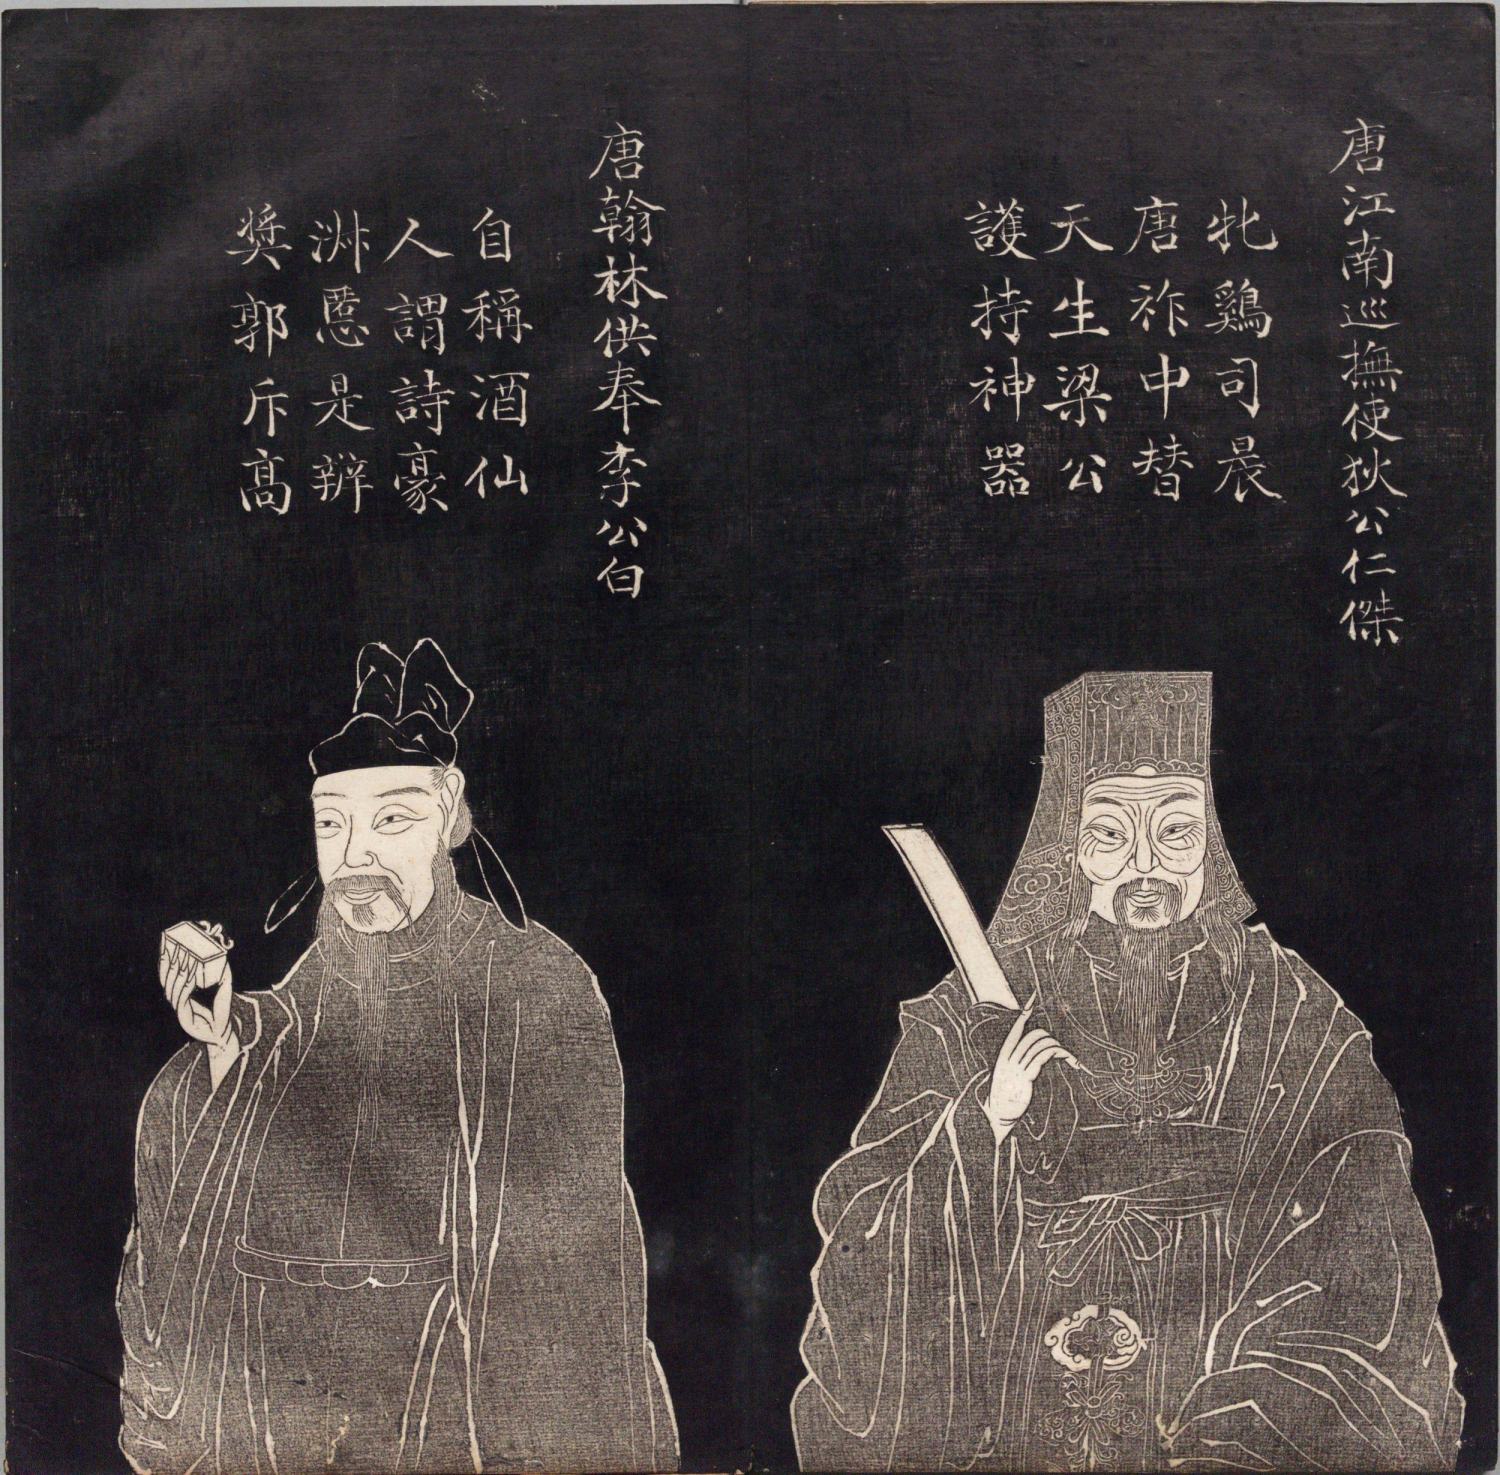 唐江南巡撫使狄公仁傑
牝鷄司晨
唐祚中替
天生梁公
護持神器
唐翰林供奉李公白
自稱酒仙
人謂詩豪
淋慝是辨
奬郭斥高